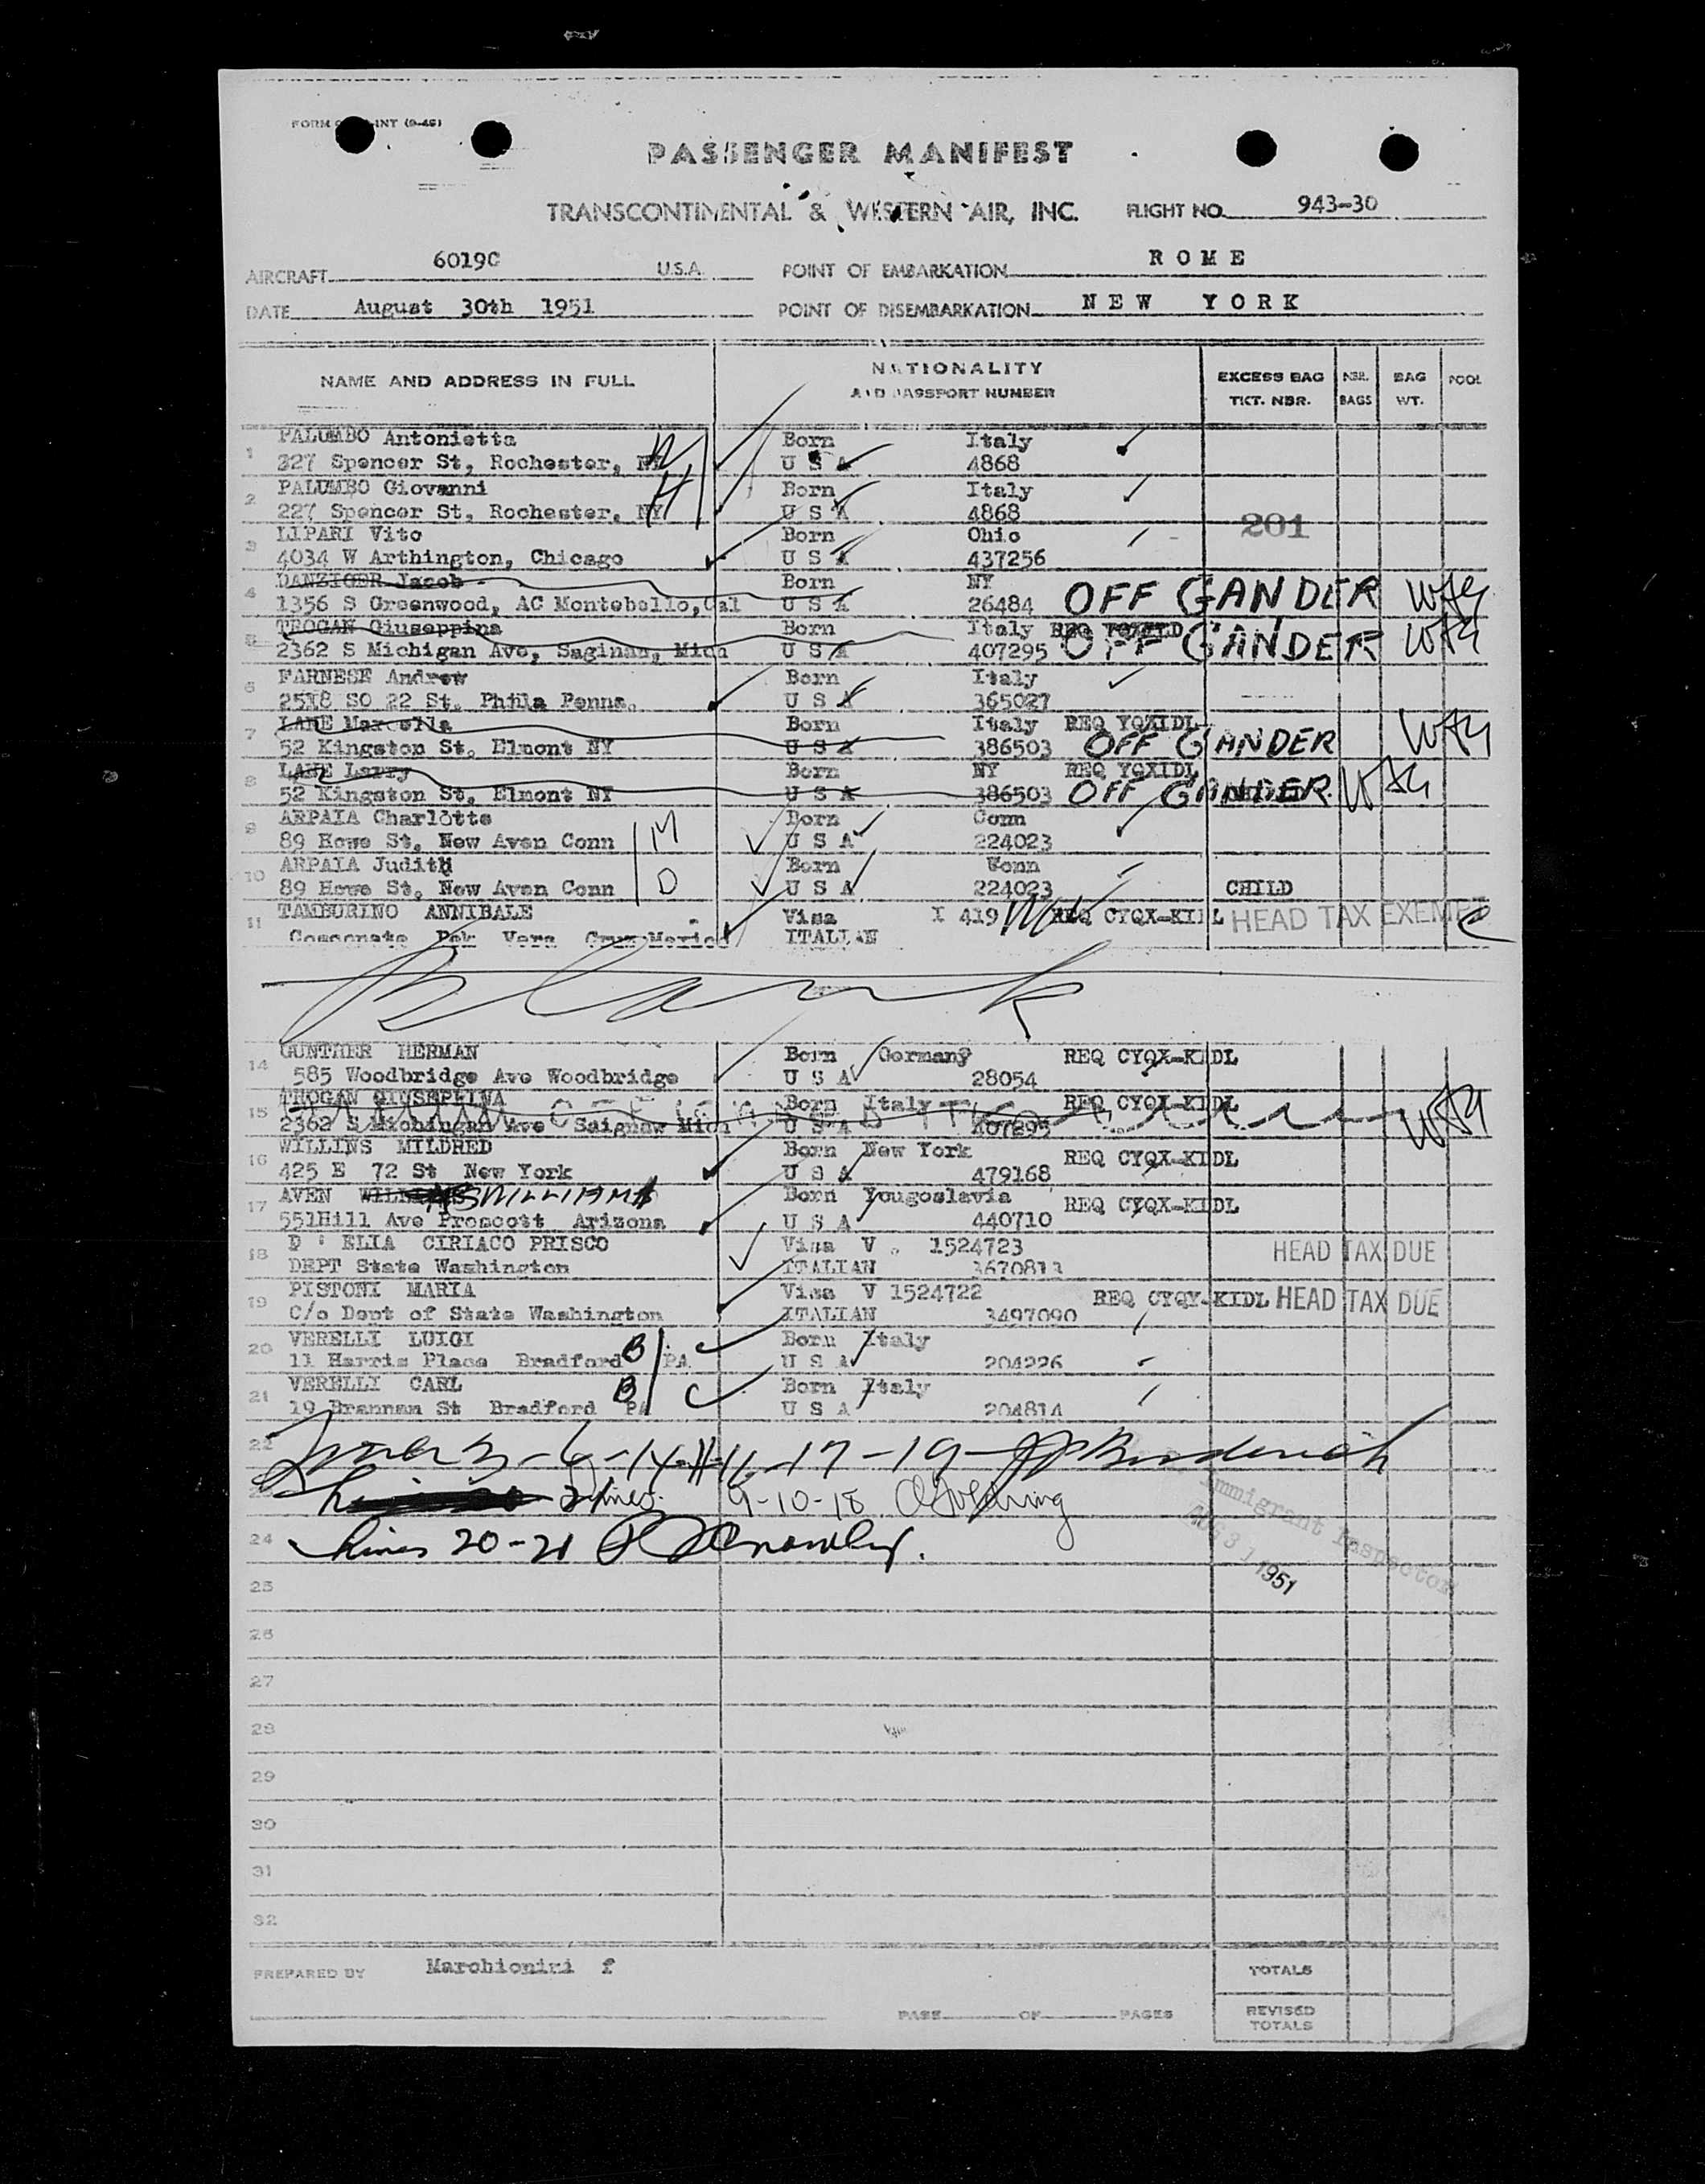 PASSENGER MANIFEST
TRANSCONTINENTAL & WESTERN AIR, INC. FLIGHT NO. 943-30
AIRCRAFT 6019C U.S.A. POINT OF EMBARKATION ROME
DATE August 30th 1951 POINT OF DISEMBARKATION NEW YORK
NAME AND ADDRESS IN FULL NATIONALITY AND PASSPORT NUMBER EXCESS BAG TICT. NBR. NBR. BAGS BAG WT. POOL
1 PALUMBO Antonietta Born Italy
327 Spencer St, Rochester, NY U S A 4868
2 PALUMBO Giovanni Born Italy
H
227 Spencer St, Rochester, NY U S A 4868
201
3 LIPARI Vito Born Ohio
4034 W Arthington, Chicago U S A 437256
4 DANZIGER Jacob Born NY
1356 S Greenwood, AC Montebello, Cal U S A 26484 OFF GANDER
5 TEOGAN Giuseppina Born Italy REQ
2362 S Michigan Ave, Saginaw, Mich U S A 407295 OFF GANDER
6 FARNESE Andrew Born Italy
2518 SO 22 St. Phila Penna. U S A 365027
7 LANE Marcella Born Italy REQ YQXIDL
52 Kingston St, Elmont NY U S A 386503 OFF GANDER
8 LANE Larry Born NY REQ YQXIDL
52 Kingston St, Elmont NY U S A 386503 OFF GANDER
9 ARPAIA Charlotte Born Conn
89 Howe St, New Aven Conn M U S A 224023
10 ARPAIA Judith Born Conn
89 Howe St, New Aven Conn D U S A 224023 CHILD
11 TAMBURINO ANNIBALE Visa I 419 REQ CYQX-KIDL HEAD TAX EXEMPT
Cosconate Pak Vera Cruz Mexico ITALIAN
Blank
14 GUNTHER HERMAN Born Germany REQ CYQX-KIDL
585 Woodbridge Ave Woodbridge U S A 28054
15 TEOGAN GIUSEPPINA Born Italy REQ CYQX-KIDL
2362 S Michingan Ave Saignaw Mich U S A 407295
16 WILLINS MILDRED Born New York REQ CYQX-KIDL
425 E 72 St New York U S A 479168
17 AVEN WILLIAMS Born Yougoslavia REQ CYQX-KIDL
551Hill Ave Prescott Arizona U S A 440710
18 D ' ELIA CIRIACO PRISCO Visa V. 1524723 HEAD TAX DUE
DEPT State Washington ITALIAN 3670813
19 PISTONI MARIA Visa V 1524722 REQ CYQY-KIDL HEAD TAX DUE
C/o Dept of State Washington ITALIAN 3497090
20 VERELLI LUIGI Born Italy
11 Harris Place Bradford PA B U S A 204226
21 VERELLI CARL Born Italy
19 Brannam St Bradford PA B U S A 204814
22 3-6-14-11-16-17-19
23 Lines 9-10-18
24 Lines 20-21
Immigrant Inspector
AUG 31 1951
25
26
27
28
29
30
31
32
PREPARED BY Marchionini f TOTALS
PAGE OF PAGES REVISED TOTALS